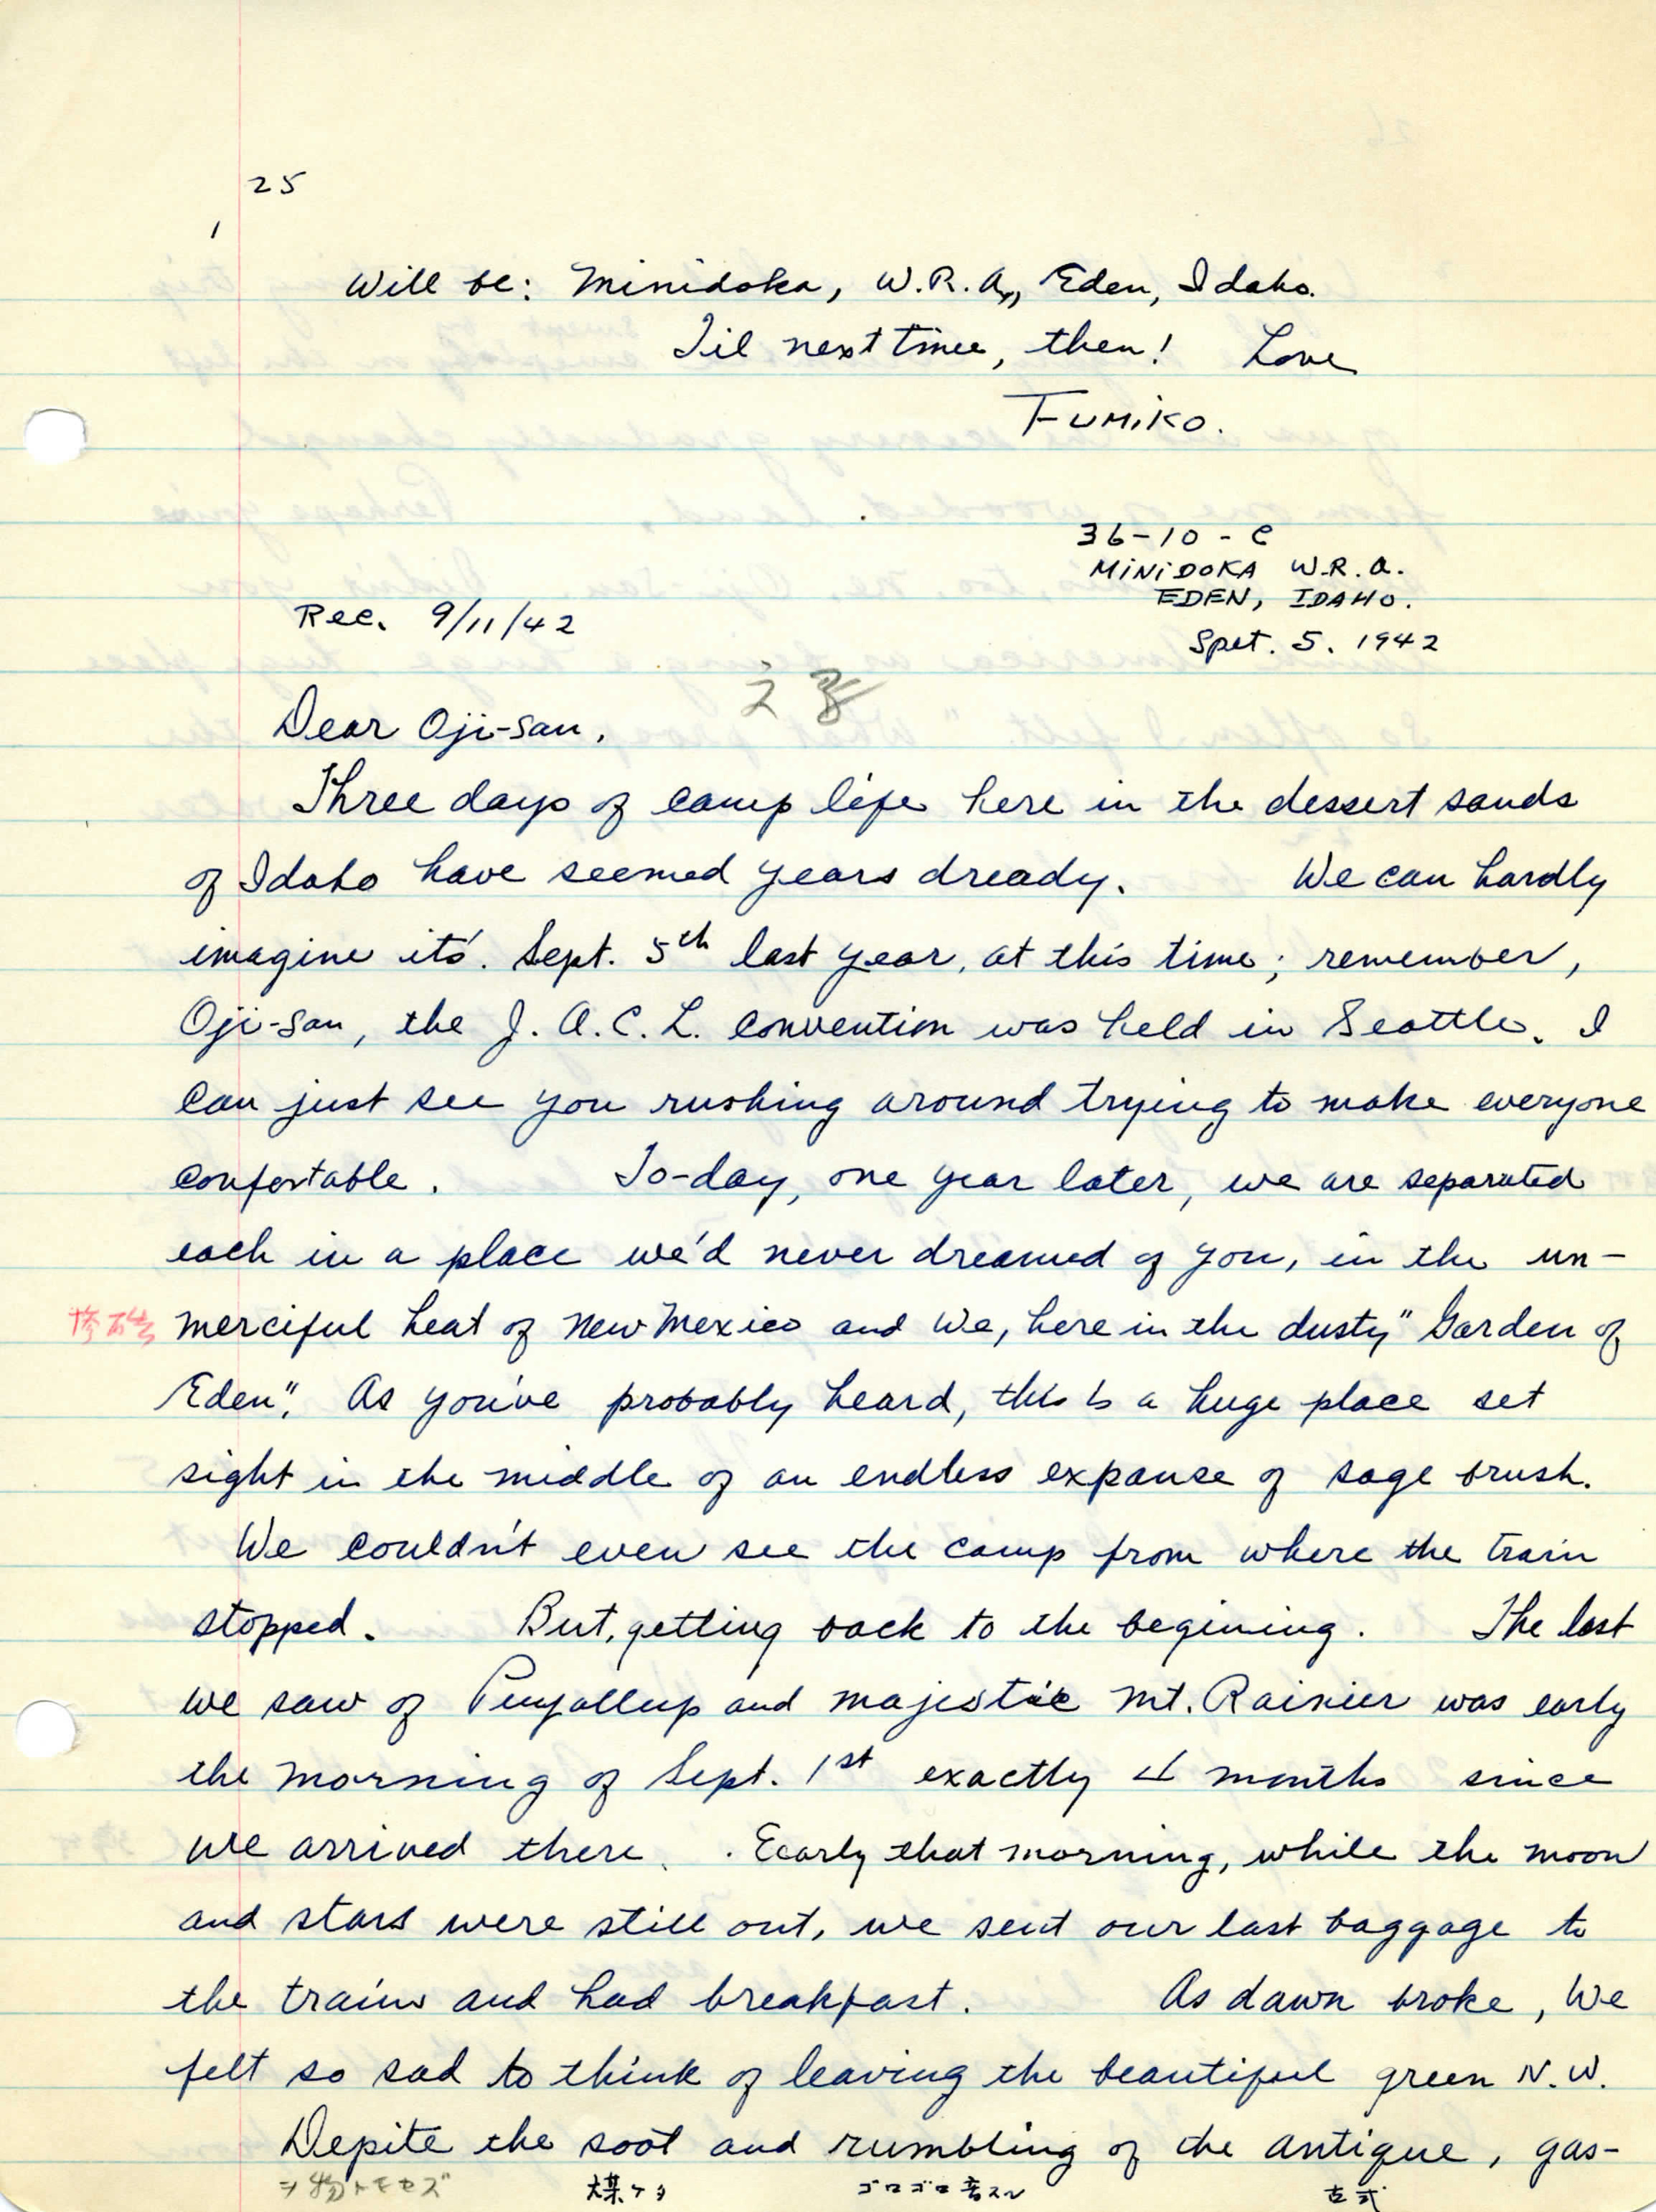 25
1
Will be: Minidoka, W.R.A., Eden, Idaho.
Til next time, then! Love
FUMIKO.
36-10-C
MINIDOKA W.R.A.
EDEN, IDAHO.
Rec. 9/11/42
Spet. 5. 1942
Dear Oji-san,
Three days of camp life here in the dessert sands
of Idaho have seemed years dready. We can hardly
imagine it's. Sept. 5th last year, at this time; remember,
Oji-san, the J.A.C.L. convention was held in Seattle. I
can just see you rushing around trying to make everyone
confortable. To-day, one year later, we are separated
each in a place we'd never dreamed of you, in the un-
merciful heat of New Mexico and We, here in the dusty "Garden of
Eden". As you've probably heard, this is a huge place set
right in the middle of an endless expanse of sage brush.
We couldn't even see the camp from where the train
stopped. But, getting back to the begining. The last
we saw of Puyallup and majestic Mt. Rainier was early
the morning of Sept. 1st exactly 4 months since
we arrived there. Early that morning, while the moon
and stars were still out, we sent our last baggage to
the train and had breakfast. As dawn broke, We
felt so sad to think of leaving the beautiful green N.W.
Depite the soot and rumbling of the antique, gas-
ヲ物トモセズ 煤ケタ ゴロゴロ音スル 古式